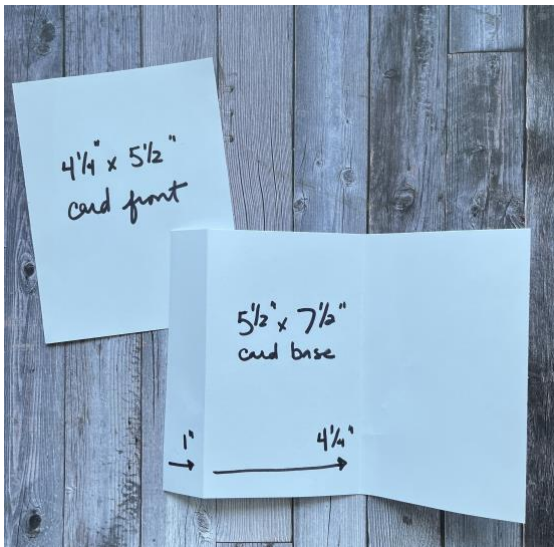 4 1/4" x 5 1/2"
card front
5 1/2" x 7 1/2"
card base
1"
4 1/4"